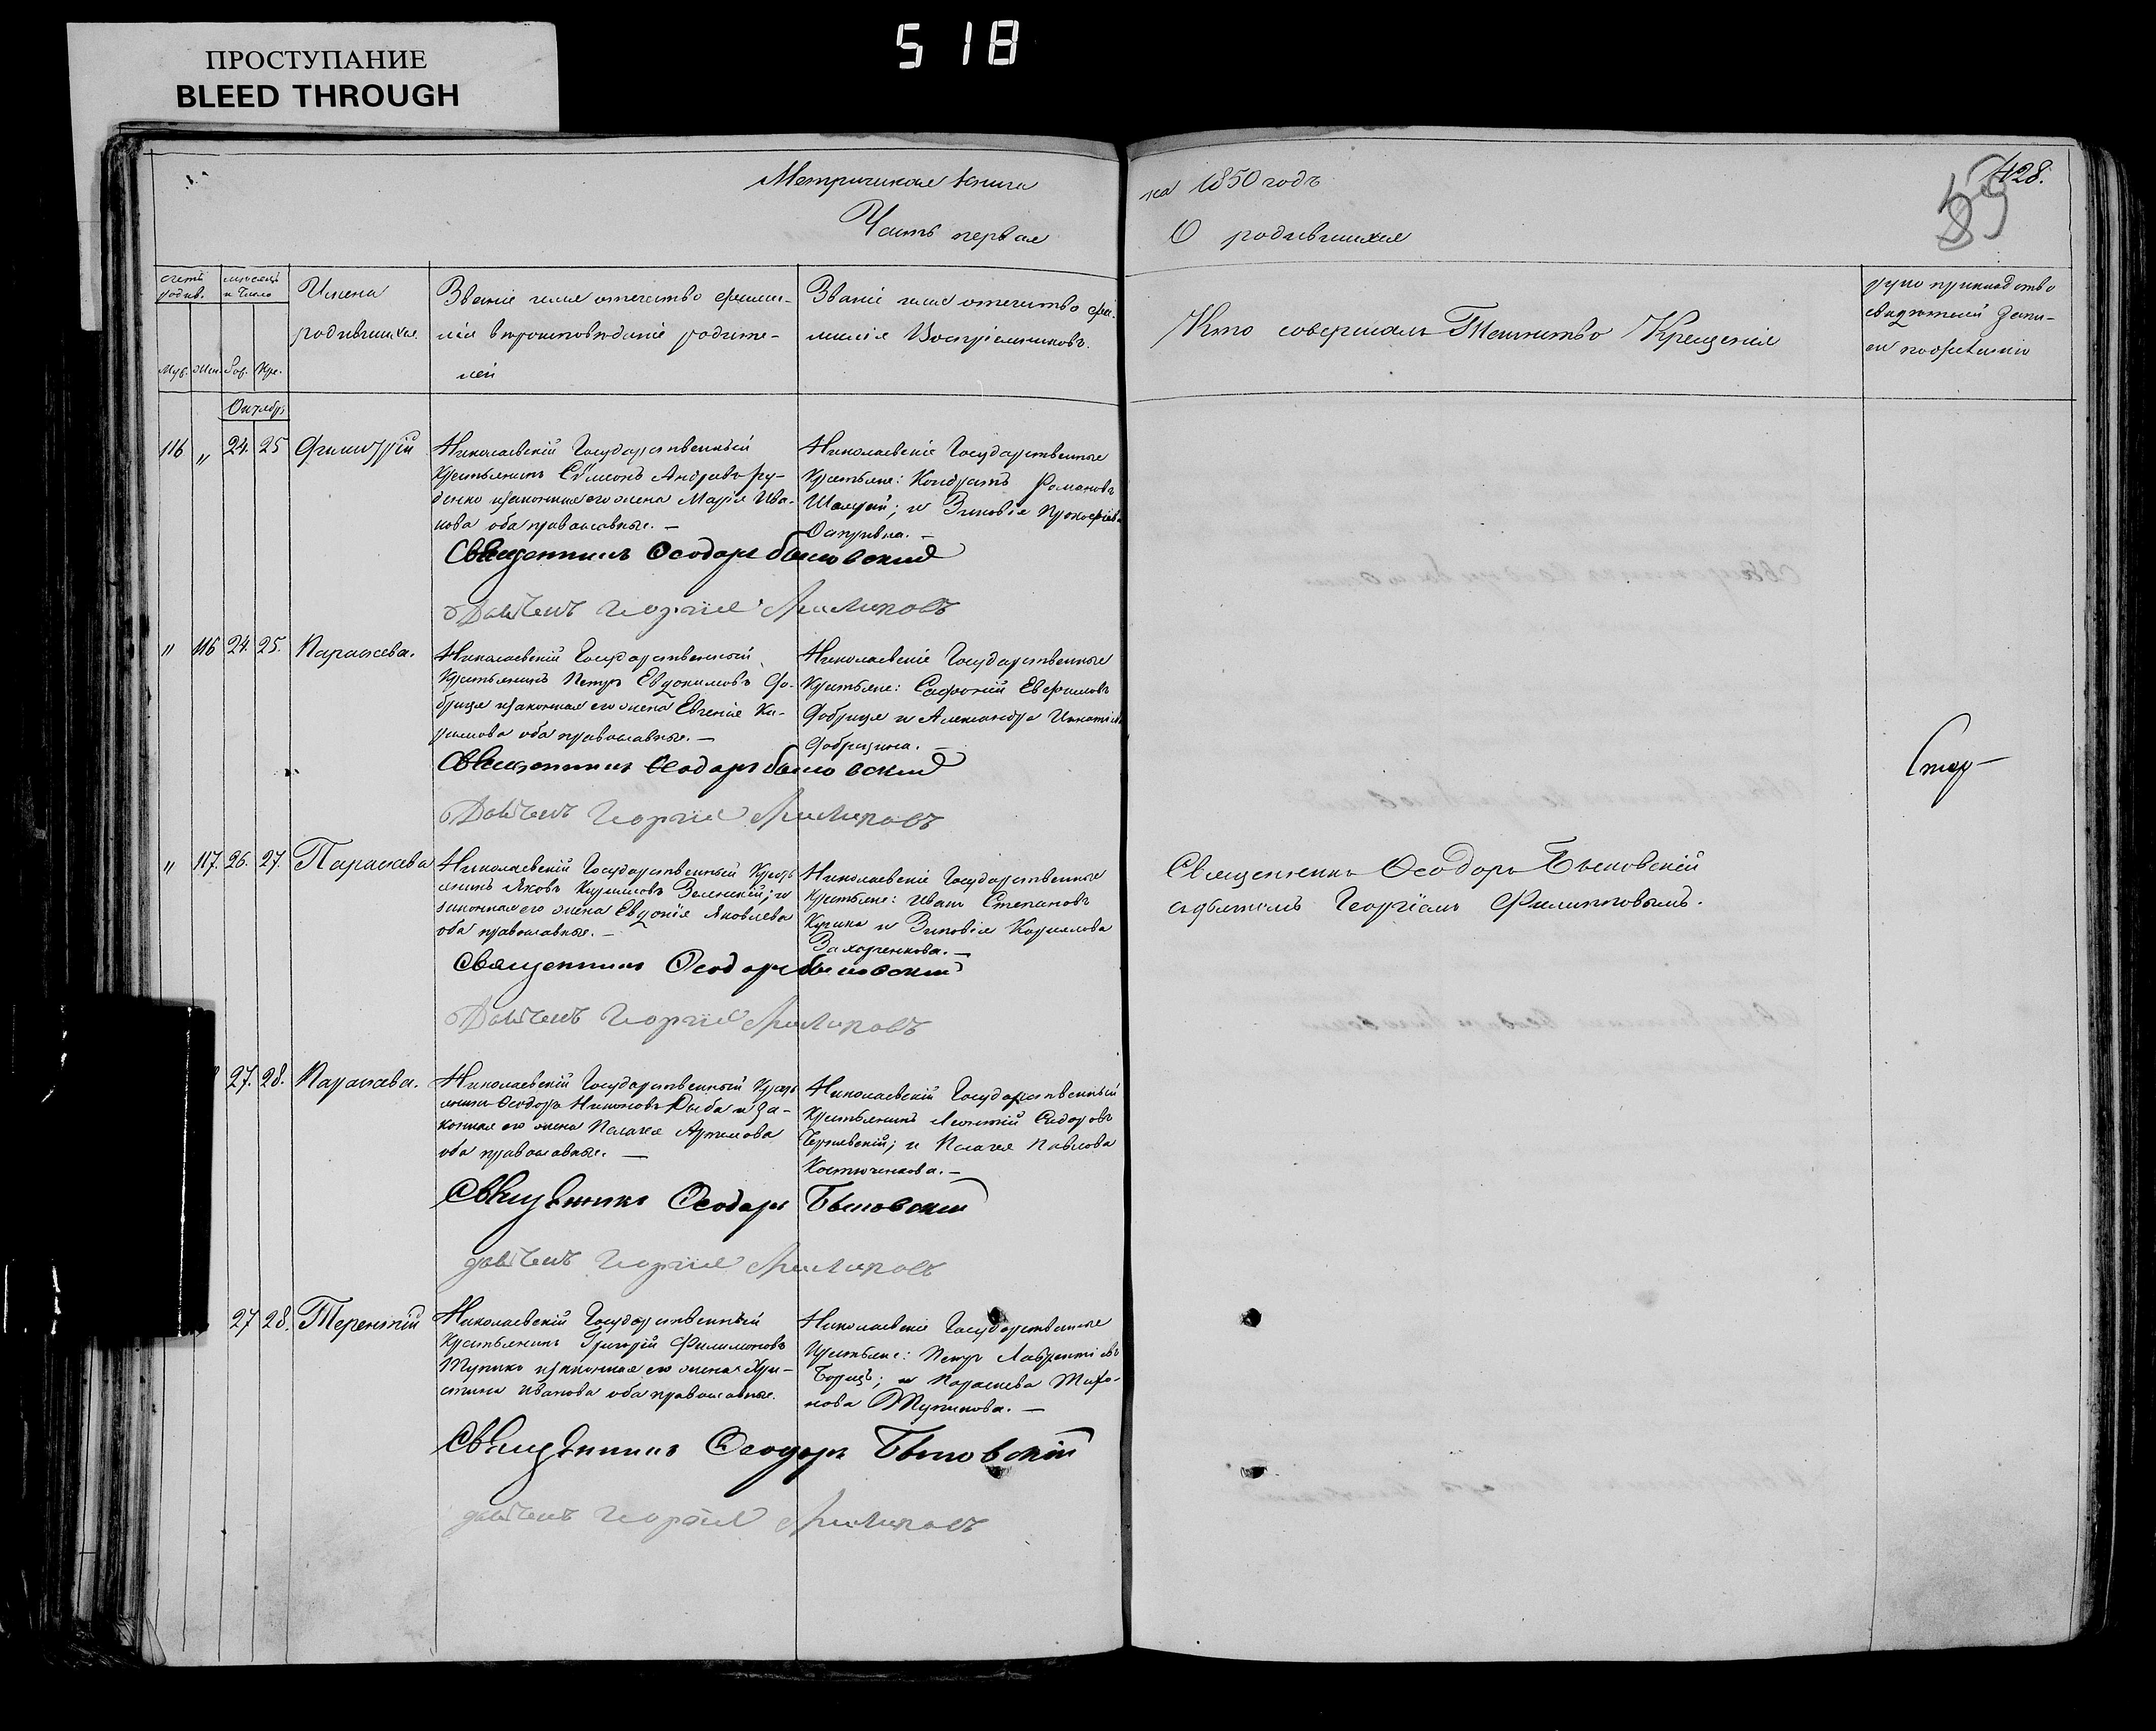 ПРОСТУПАНИЕ
BLEED THROUGH
518
Метрическая книга
на 1850 годъ
428.
Часть первая
О родившихся
счетъ родив.
мѣсяцъ и число
Муж. Жен. Рож. Кре.
Имена
родившихся.
Званіе имя отечество фами-
лія вѣроисповѣданіе родите-
лей
Званіе имя отечество фа-
милія Воспріемниковъ.
Кто совершалъ Таинство Крещенія
рукоприкладство
свидѣтелей запи-
си по желанію
Октябрь
116 „ 24. 25 Димитрій
Николаевскій Государственный
Крестьянинъ Сѵмеонъ Андреевъ Ру-
денко и законная его жена Марія Ива-
нова оба православные. —
Николаевскіе Государственные
Крестьяне: Кондратъ Романовъ
и Зиновія Прокофіева
Священникъ Ѳеодоръ Быковский
Дьячекъ Георгие Филиповъ
„ 116 24. 25. Параскева.
Николаевскій Государственный
Крестьянинъ Петръ Евдокимовъ До-
брица и законная его жена Евгенія Ки-
рилова оба православные. —
Николаевскіе Государственные
Крестьяне: Софроній Евфимовъ
Добрица и Александра Игнатіева
Добрицина. —
Священникъ Ѳеодоръ Быковский
Дьячекъ Георгие Филиповъ
Стар—
„ 117. 26. 27. Параскева
Николаевскій Государственный Кресть
янинъ Яковъ Кириловъ Зеленскій; и
законная его жена Евдокія Яковлева
оба православные. —
Николаевскіе Государственные
Крестьяне: Иванъ Степановъ
и Зиновія Корнилова
Захарченкова. —
Священникъ Ѳеодоръ Быковский
съ дьячкомъ Георгіемъ Филипповымъ.
Священникъ Ѳеодоръ Быковский
Дьячекъ Георгие Филиповъ
27. 28. Параскева.
Николаевскій Государственный Кресть
янинъ Ѳеодоръ Никоновъ Рыба и за-
конная его жена Пелагея Артемова
оба православные. —
Николаевскій Государственный
Крестьянинъ Леонтій Сидоровъ
и Пелагея Павлова
Костюченкова. —
Священникъ Ѳеодоръ Быковский
дьячекъ Георгие Филиповъ
27 28. Терентій
Николаевскій Государственный
Крестьянинъ Григорій Филимоновъ
Тупико и законная его жена Хри-
стина Иванова оба православные.
Николаевскіе Государственные
Крестьяне: Петръ Лаврентіевъ
Борецъ; и Параскева Тихо-
нова Тупикова. —
Священникъ Ѳеодоръ Быковскій
дьячекъ Георгие Филиповъ